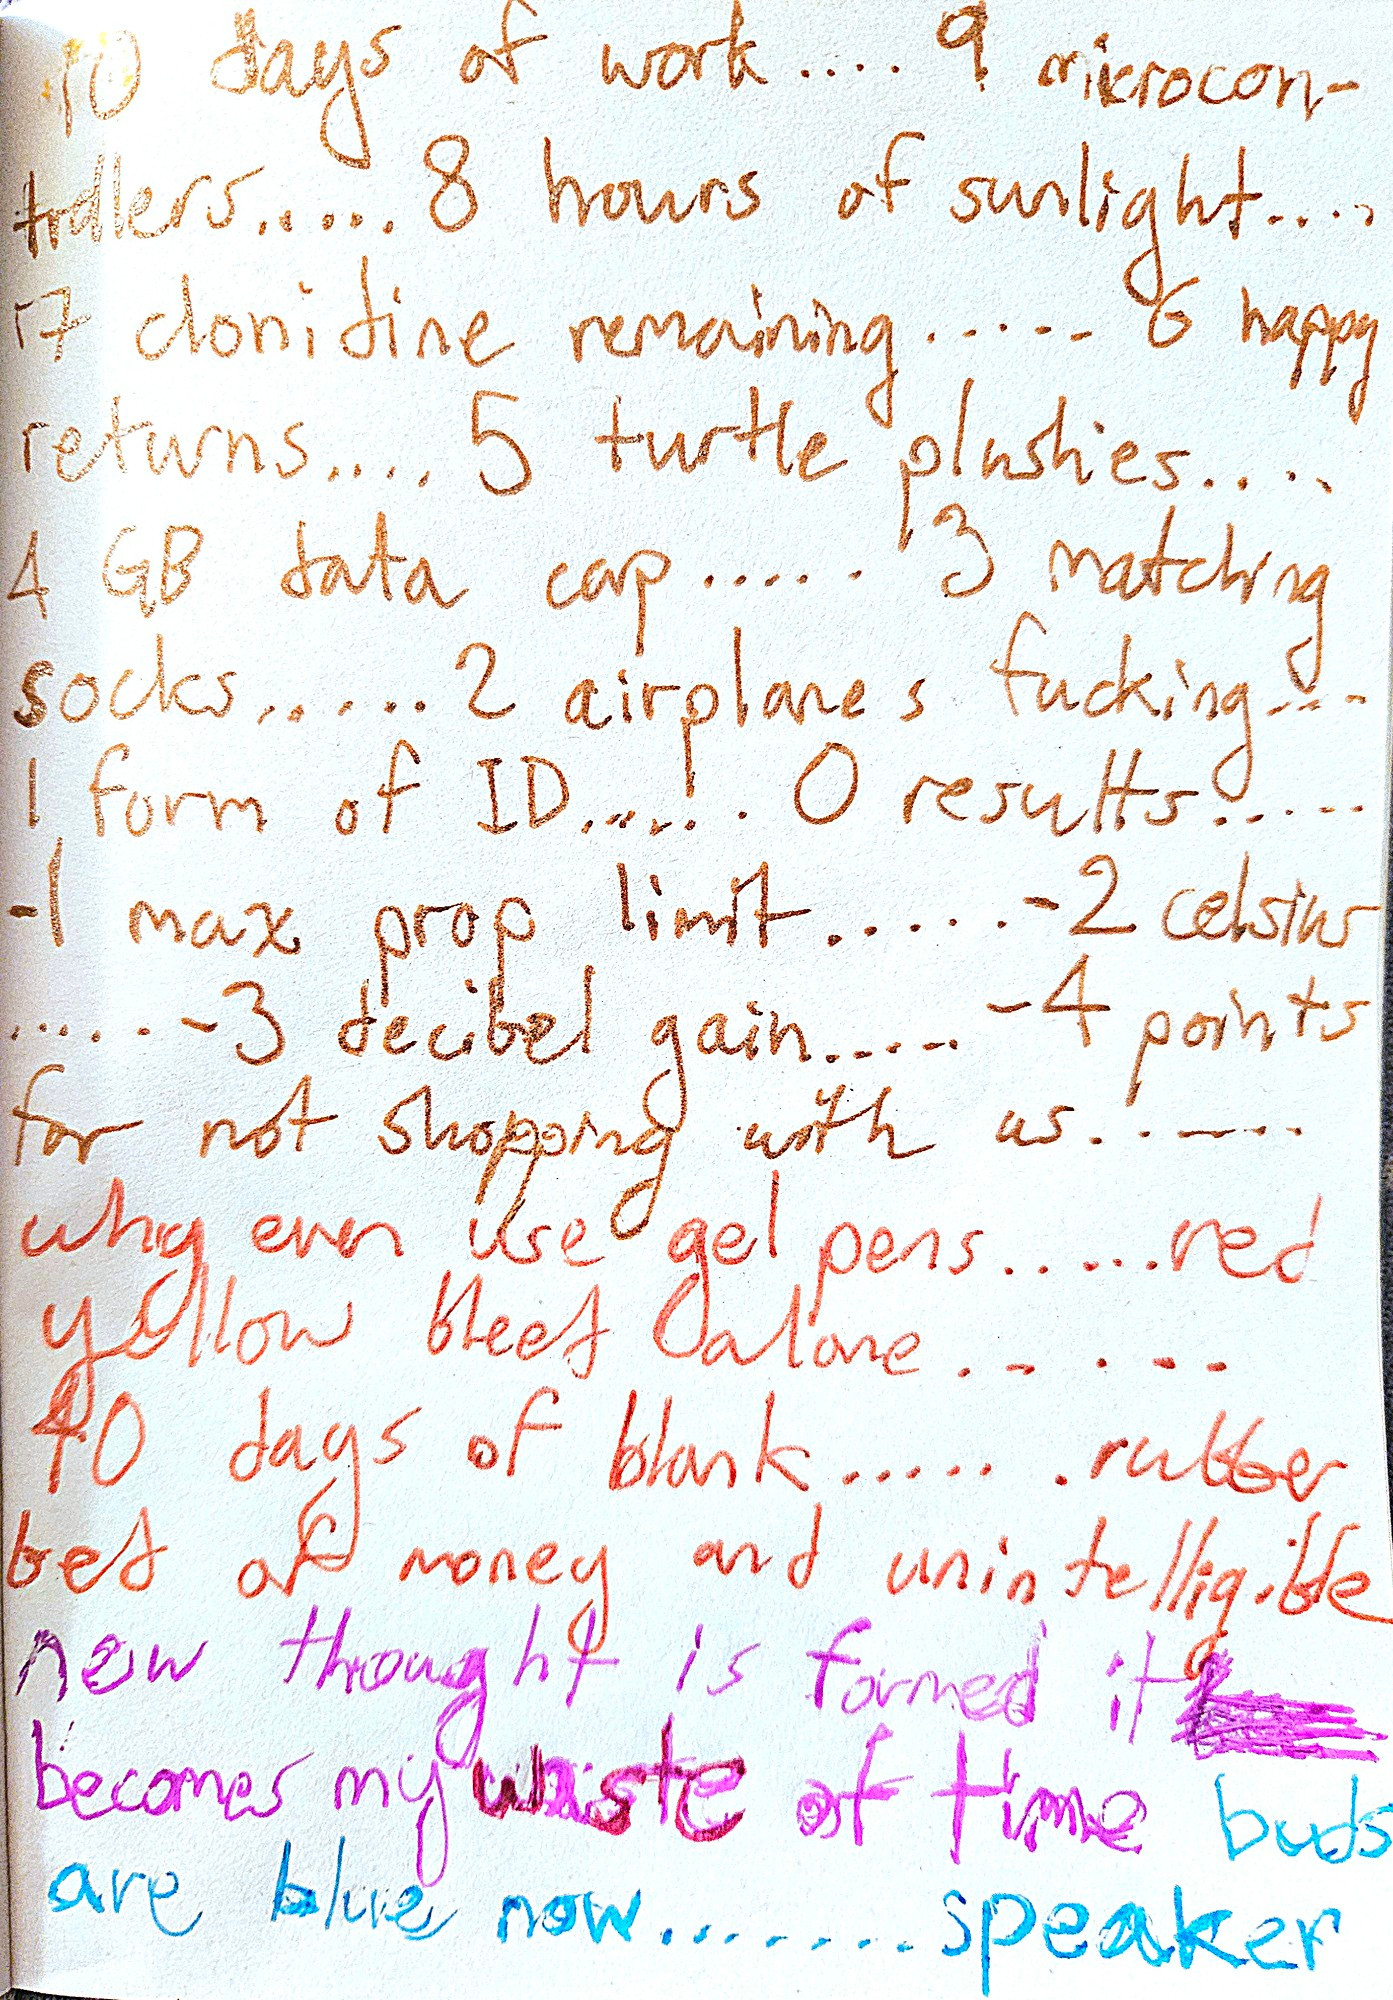 10 days of work.... 9 microcon-
trollers...... 8 hours of sunlight....
17 clonidine remaining...... 6 happy
returns.... 5 turtle plushies....
4 GB data cap..... 3 matching
socks...... 2 airplanes fucking....
1 form of ID...... 0 results.....
-1 max prop limit...... -2 celsius
..... -3 decibel gain..... -4 points
for not shopping with us.......
why even use gel pens..... red
yellow bleed alone......
40 days of blank...... rubber
bed of money and unintelligible
new thought is formed it
becomes my waste of time buds
are blue now........ speaker